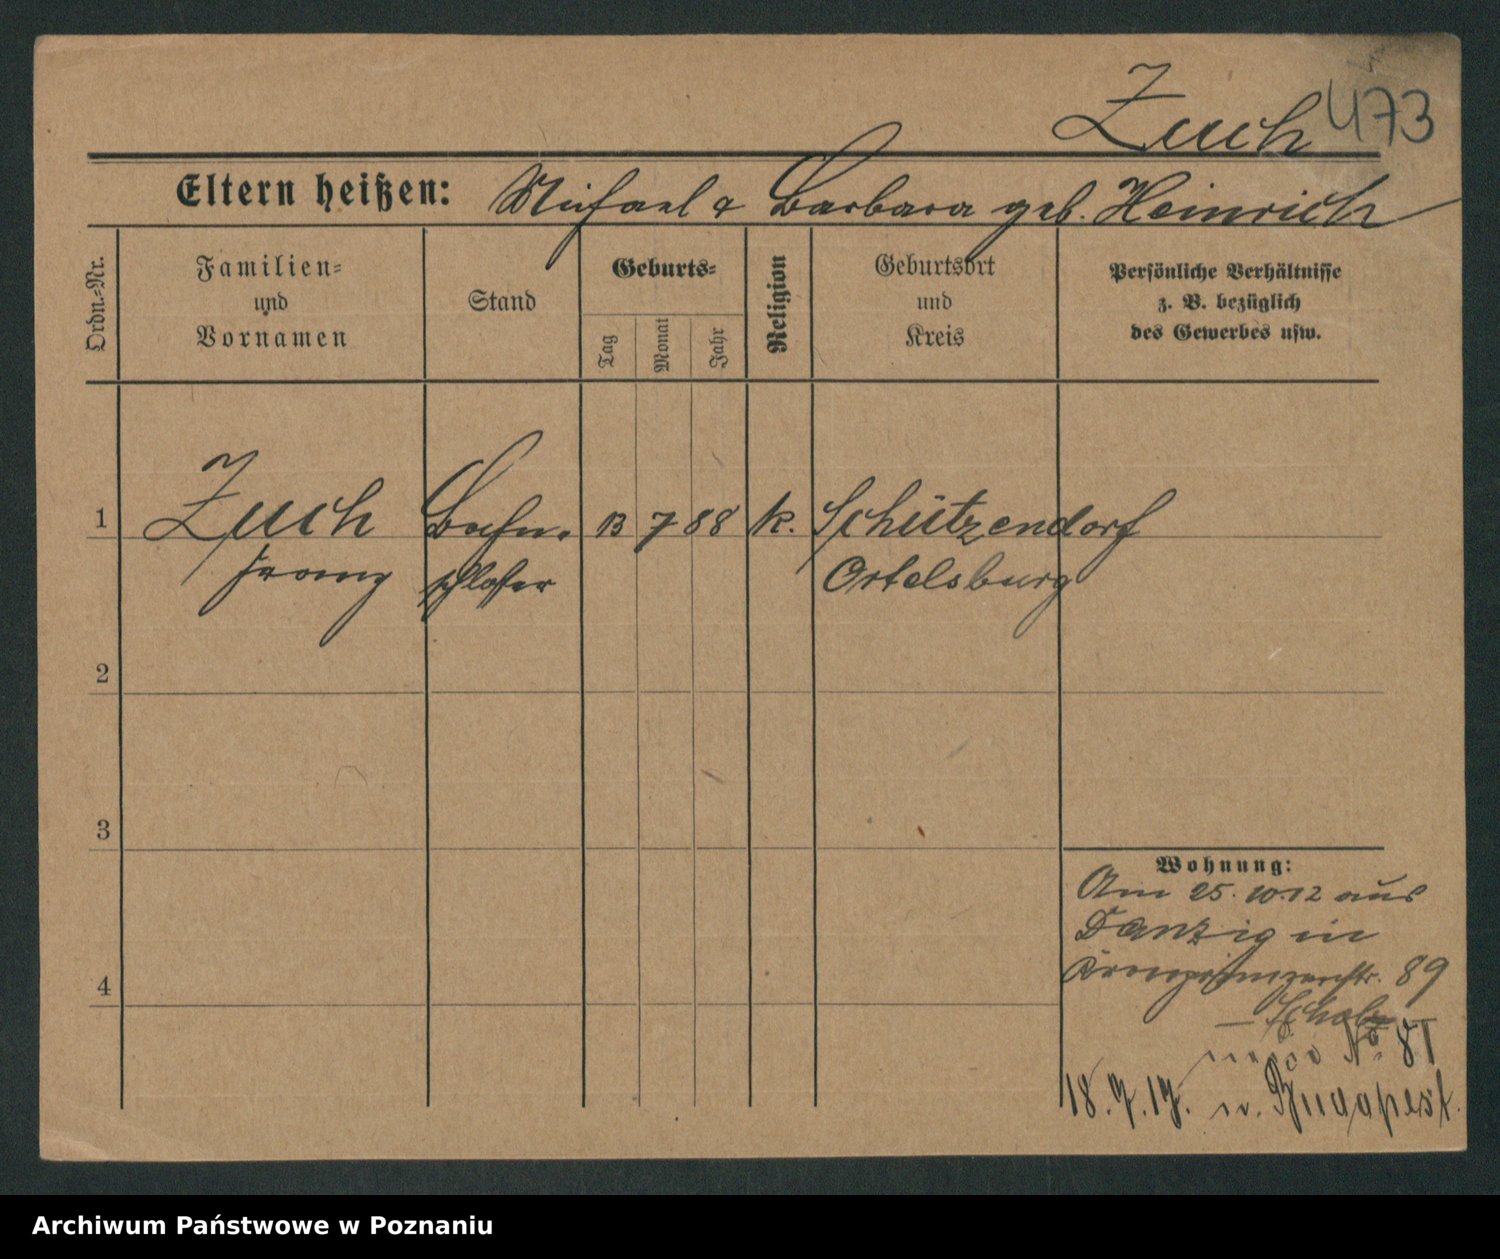 Zuch 473
Eltern heißen: Michael & Barbara geb. Heinrich
Ordn.-Nr.
Familien-
und
Vornamen
Stand
Geburts-
Tag
Monat
Jahr
Religion
Geburtsort
und
Kreis
Persönliche Verhältnisse
z. B. bezüglich
des Gewerbes usw.
1 Zuch Bahn- 13 7 88 k. Schützendorf
Franz schlosser Ortelsburg
2
3
4
Wohnung:
Am 25.10.12 aus
Danzig in
Kronprinzenstr. 89
No. 81
18.7.17. n. Budapest.
Archiwum Państwowe w Poznaniu